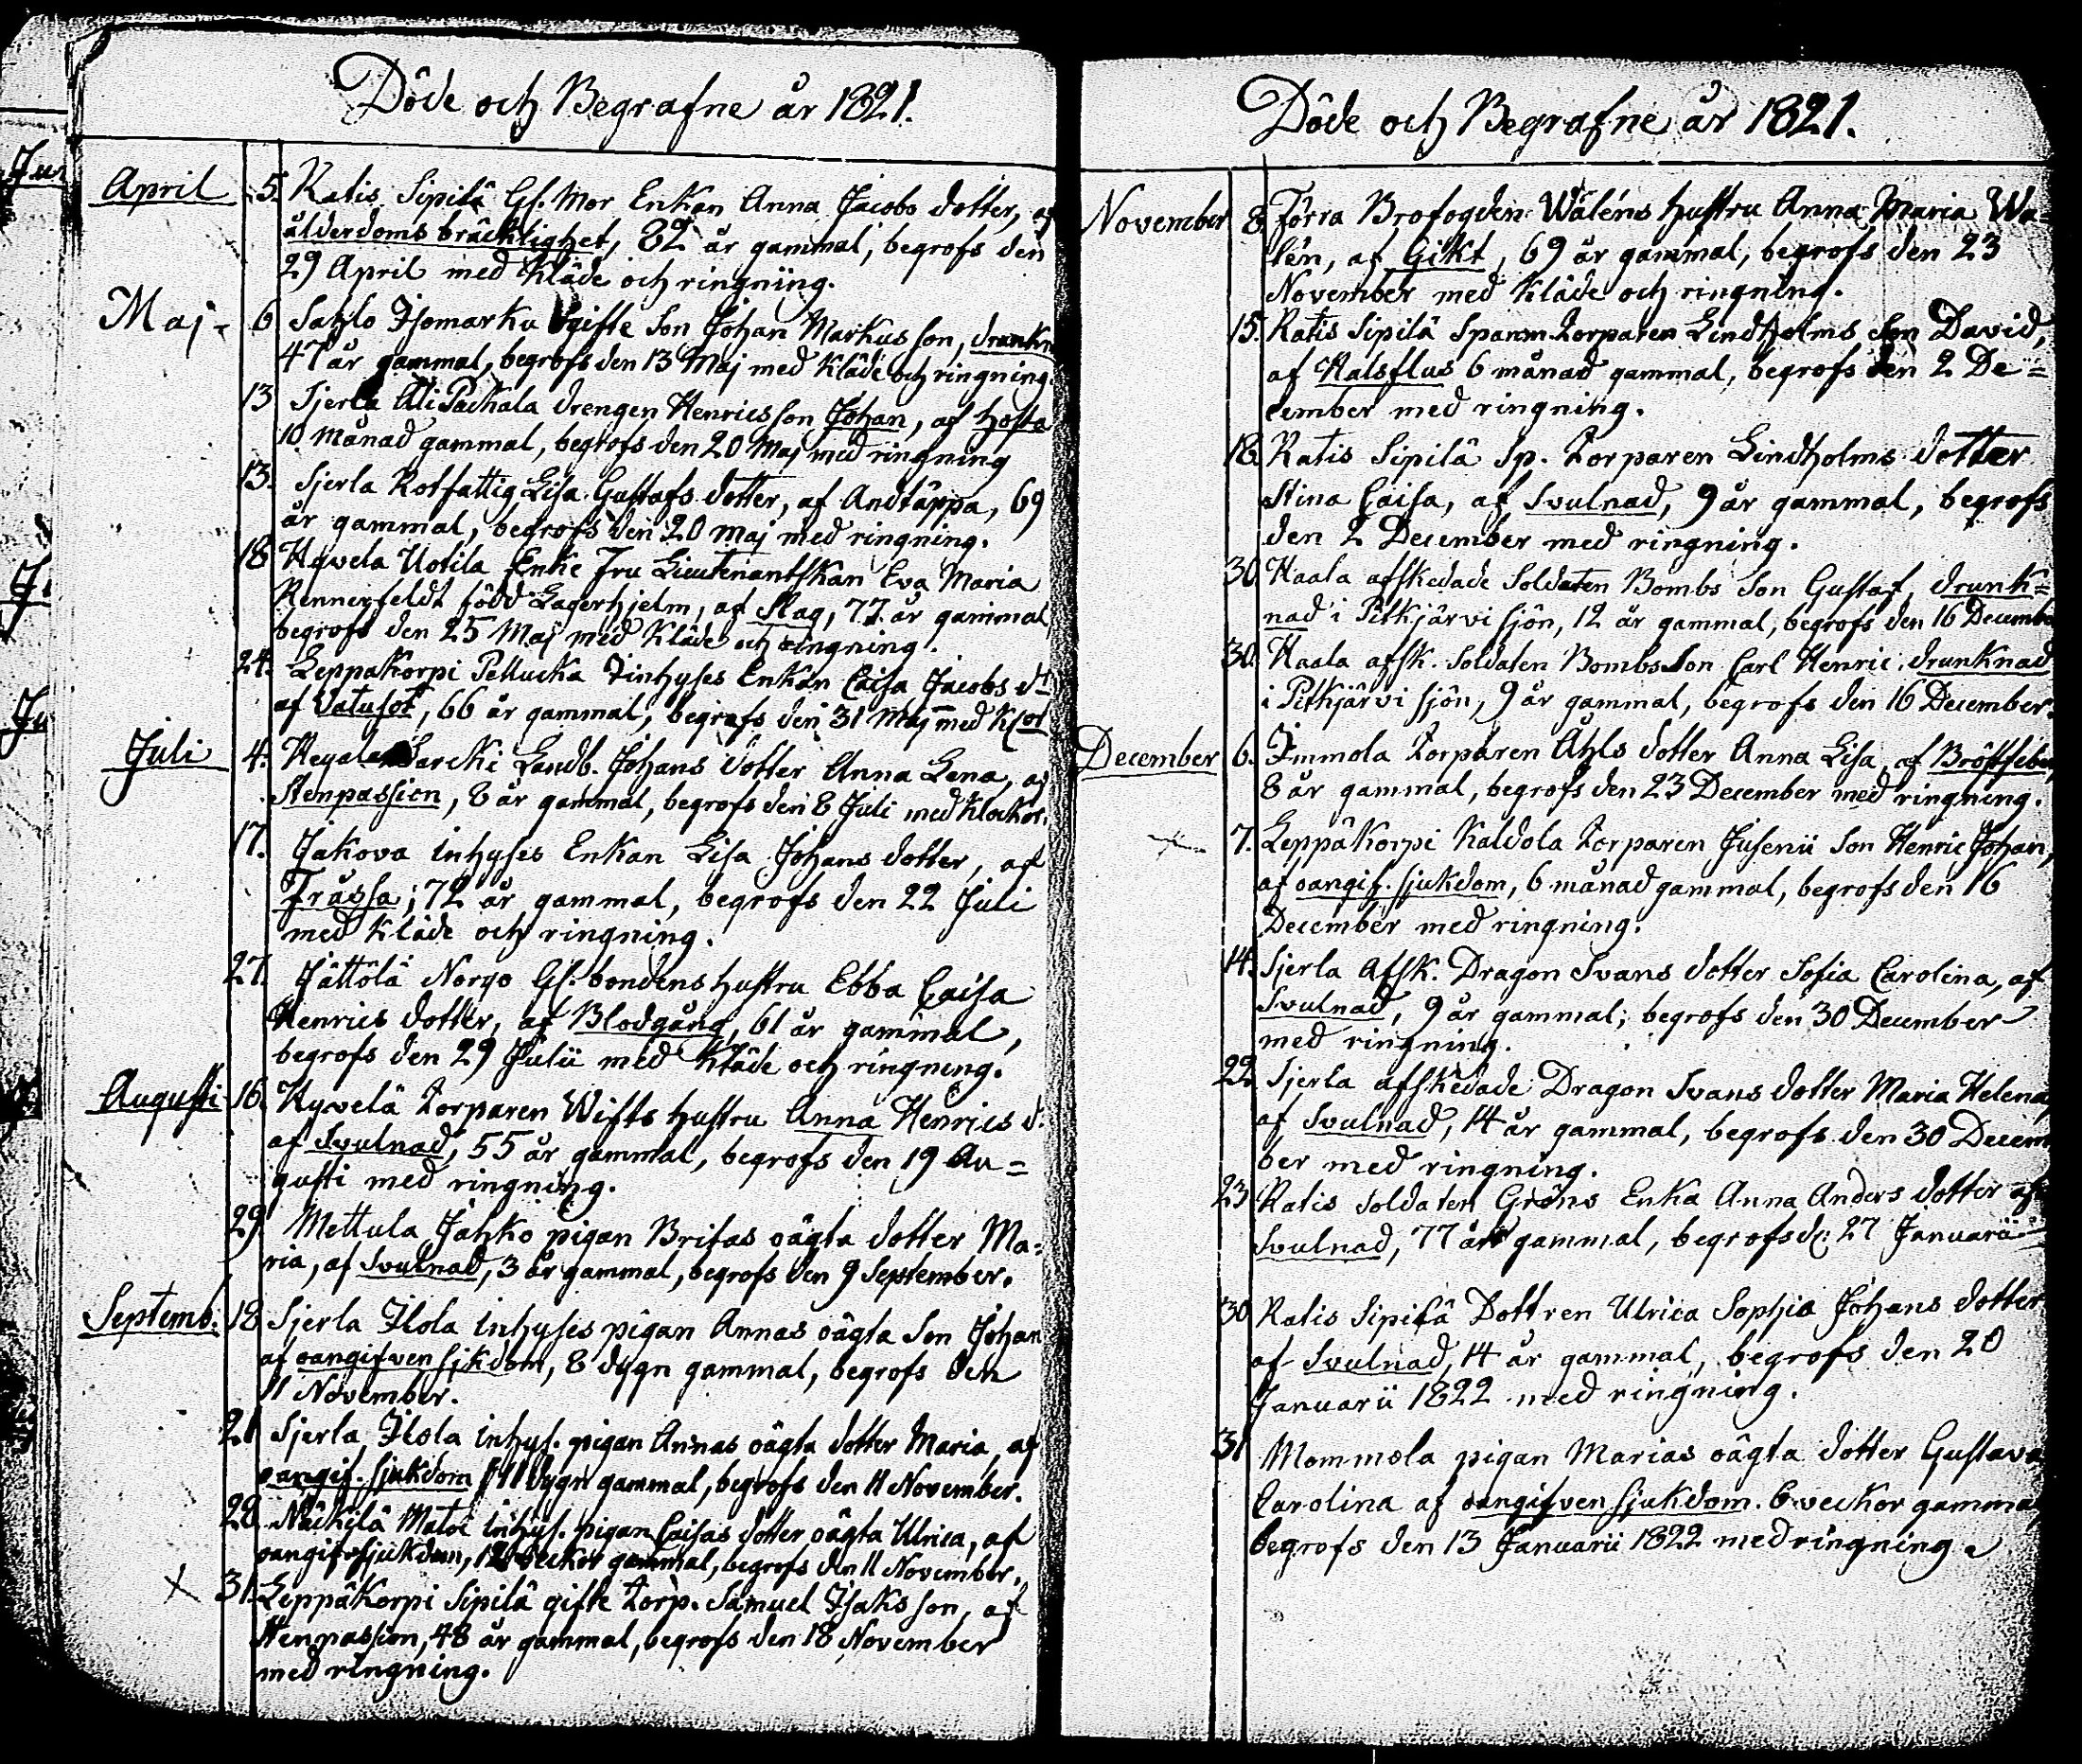 Döde och Begrafne år 1821.
April 5. Katis Sipilä Gl. Mor Enkan Anna Jacobs dotter, af
ålderdoms bräcklighet, 82 år gammal, begrofs den
29 April med Kläde och ringning.
Maj 6 Sahlo Isomarku ogifte Son Johan Markus son, drunkn
47 år gammal, begrofs den 13 Maj med Kläde och ringning.
13 Sjerla Ali Packala drengen Henrics son Johan, af hosta
10 månad gammal, begrofs den 20 Maj med ringning
13. Sjerla Rotfattig Lisa Gustafs dotter, af Andtäppa, 69
år gammal, begrofs den 20 Maj med ringning.
18 Hyvela Uotila Enke Fru Lieutenantskan Eva Maria
Rennerfeldt född Lagerhjelm, af Slag, 77 år gammal,
begrofs den 25 Maj med Kläde och ringning.
24. Leppäkorpi Pellucka Inhyses Enkan Caisa Jacobs dr
af Vatusot, 66 år gammal, begrofs den 31 Maj med Klor
Juli 4. Sarcki Landb. Johans dotter Anna Lena, af
Stenpassion, 8 år gammal, begrofs den 8 Juli med Klockor.
17. Jakova inhyses Enkan Lisa Johans dotter, af
Frässa, 72 år gammal, begrofs den 22 Juli
med Kläde och ringning.
27. Jättölä Norgo Gl. bondens hustru Ebba Caisa
Henrics dotter, af Blodgång, 61 år gammal,
begrofs den 29 Julii med Kläde och ringning.
Augusti 16. Hyvelä Torparen Wifts hustru Anna Henrics d.
af Svulnad, 55 år gammal, begrofs den 19 Au=
gusti med ringning.
29 Mettula Jahko pigan Britas oägta dotter Ma=
ria, af Svulnad, 3 år gammal, begrofs den 9 September.
Septemb. 18 Sjerla Ilola inhyses pigan Annas oägta Son Johan
af oangifven sjkdom, 8 dygn gammal, begrofs den
11 November.
21 Sjerla Ilola inhys. pigan Annas oägta dotter Maria, af
oangif. sjukdom 11 dygn gammal, begrofs den 11 November.
28. Näckilä Matoi inhys. pigan Caisas dotter oägta Ulrica, af
oangif sjukdom, 12 veckor gammal, begrofs den 11 November.
31. Leppäkorpi Sipilä gifte torp. Samuel Isaks son, af
Stenpassion, 48 år gammal, begrofs den 18 November
med ringning.
Döde och Begrafne år 1821.
November 8. Förra Brofogden Waléns hustru Anna Maria Wa=
lén, af Gikt, 69 år gammal, begrofs den 23
November med Kläde och ringning.
15. Katis Sipilä Spanm. Torparen Lindholms Son David,
af Halsflus 6 månad gammal, begrofs den 2 De=
cember med ringning.
18. Katis Sipilä Sp. Torparen Lindholms dotter
Stina Caisa, af Svulnad, 9 år gammal, begrofs
den 2 December med ringning.
30. Haala afskedade Soldaten Bombs Son Gustaf, drunk=
nad i Pitkjärvi sjön, 12 år gammal, begrofs den 16 Decembe
30. Haala afsk. Soldaten Bombs Son Carl Henric, drunknad
i Pitkjärvi sjön, 9 år gammal, begrofs den 16 December.
December 6. Immola Torparen Åhls dotter Anna Lisa, af Bröstfeber,
8 år gammal, begrofs den 23 December med ringning.
7. Leppäkorpi Kaldola Torparen Jusenii Son Henric Johan,
af oangif. sjukdom, 6 månad gammal, begrofs den 16
December med ringning.
14. Sjerla Afsk. Dragon Svans dotter Sofia Carolina, af
Svulnad, 9 år gammal, begrofs den 30 December
med ringning.
22. Sjerla afskedade Dragon Svans dotter Maria Helena,
af Svulnad, 14 år gammal, begrofs den 30 Decem
ber med ringning.
23 Katis Soldaten Gröns Enka Anna Anders dotter af
Svulnad, 77 år gammal, begrofs d: 27 Januarii
30 Katis Sipilä Dottren Ulrica Sophia Johans dotter
af Svulnad, 14 år gammal, begrofs den 20
Januarii 1822 med ringning.
31 Mommola pigan Marias oägta dotter Gustava
Carolina af oangifven sjukdom. 6 veckor gammal,
begrofs den 13 Januarii 1822 med ringning.